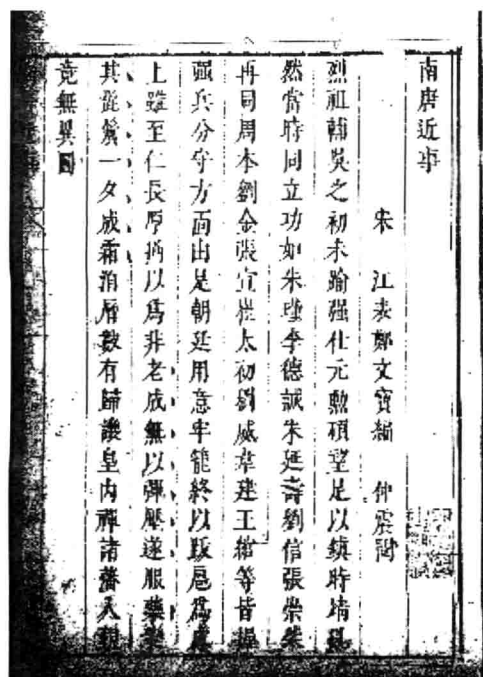 南唐近事
宋 江表鄭文寶編 仲震
烈祖輔吳之初未踰强仕元勲碩望足以鎮時靖亂
然當時同立功如朱瑾李德誠朱延壽劉信張崇柴
再同周本劉金張宣崔太初劉威韋建王綰等皆握
强兵分守方面由是朝廷用意牢籠終以跋扈為慮
上雖至仁長厚猶以爲非老成無以彈壓遂服藥變
其髭鬢一夕成霜洎曆數有歸讓皇內禪諸藩入覲
竟無異圖